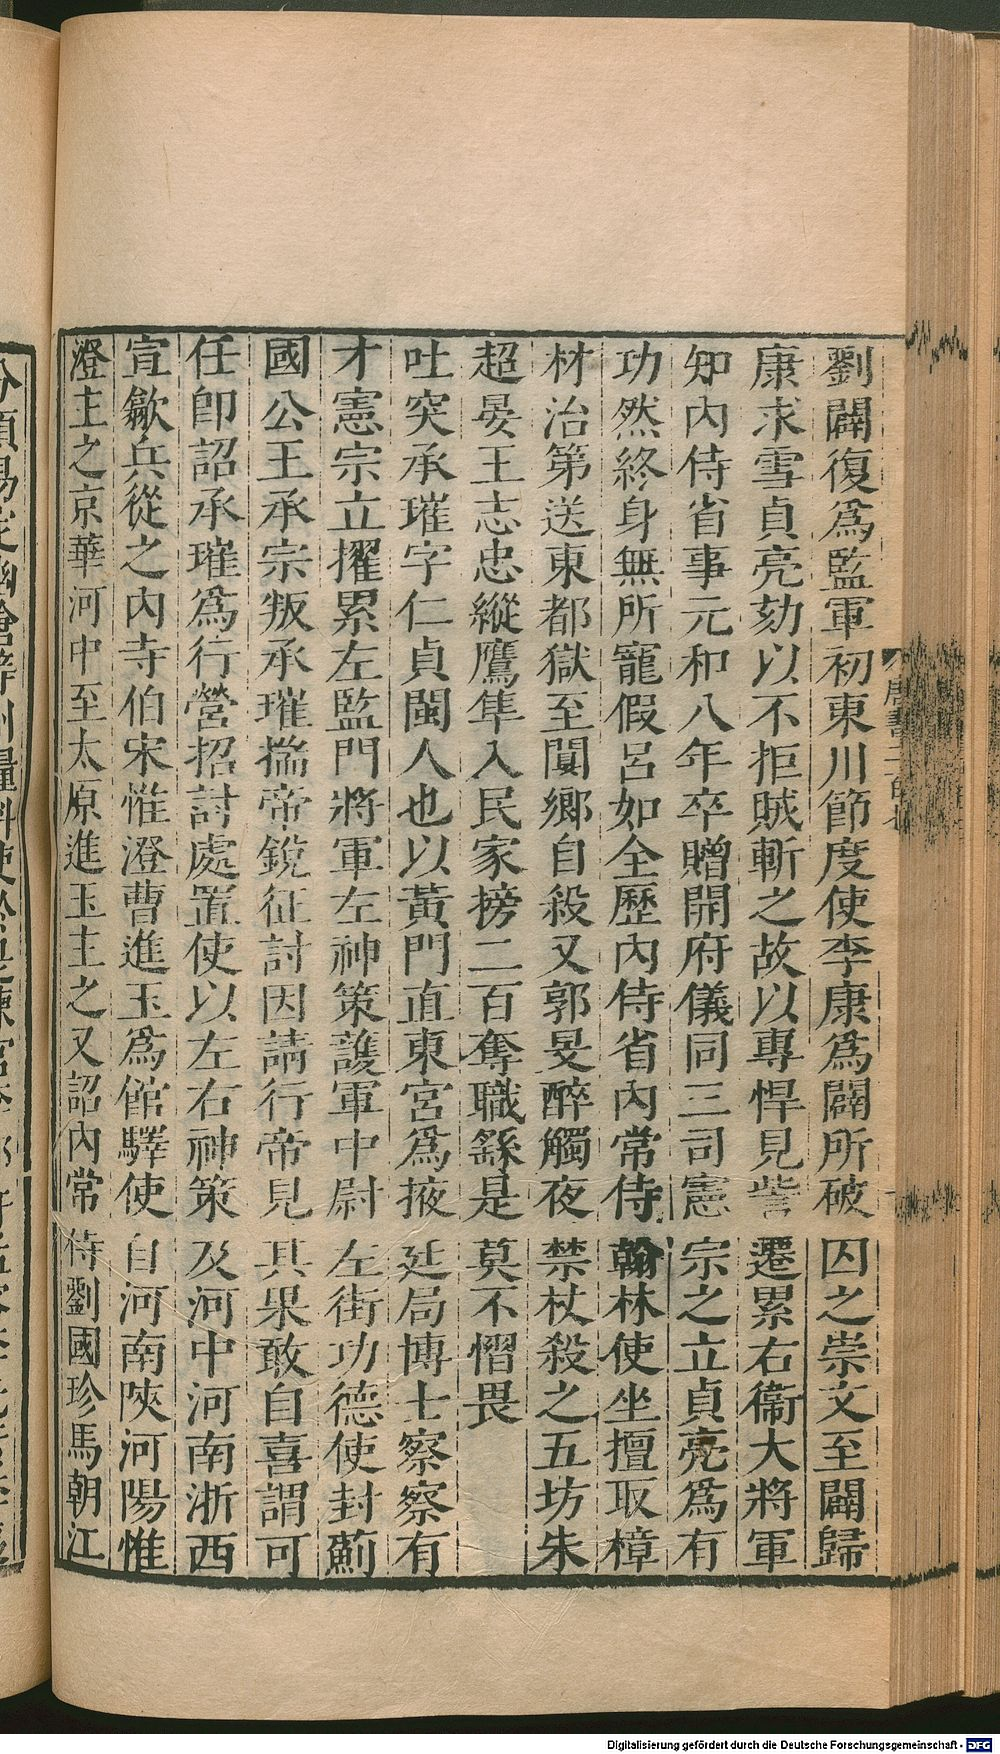 劉闢復爲監軍初東川節度使李康爲闢所破囚之崇文至闢歸
康求雪貞亮劾以不拒賊斬之故以專悍見訾遷累右衞大將軍
知內侍省事元和八年卒贈開府儀同三司憲宗之立貞亮爲有
功然終身無所寵假呂如全歷內侍省內常侍翰林使坐擅取樟
材治第送東都獄至閿鄉自殺又郭旻醉觸夜禁杖殺之五坊朱
超晏王志忠縱鷹隼入民家搒二百奪職繇是莫不慴畏
吐突承璀字仁貞閩人也以黃門直東宮爲掖廷局博士察察有
才憲宗立擢累左監門將軍左神策護軍中尉左街功德使封薊
國公王承宗叛承璀揣帝銳征討因請行帝見其果敢自喜謂可
任即詔承璀爲行營招討處置使以左右神策及河中河南浙西
宣歙兵從之內寺伯宋惟澄曹進玉爲館驛使自河南陝河陽惟
澄主之京華河中至太原進玉主之又詔內常侍劉國珍馬朝江
Digitalisierung gefördert durch die Deutsche Forschungsgemeinschaft - DFG